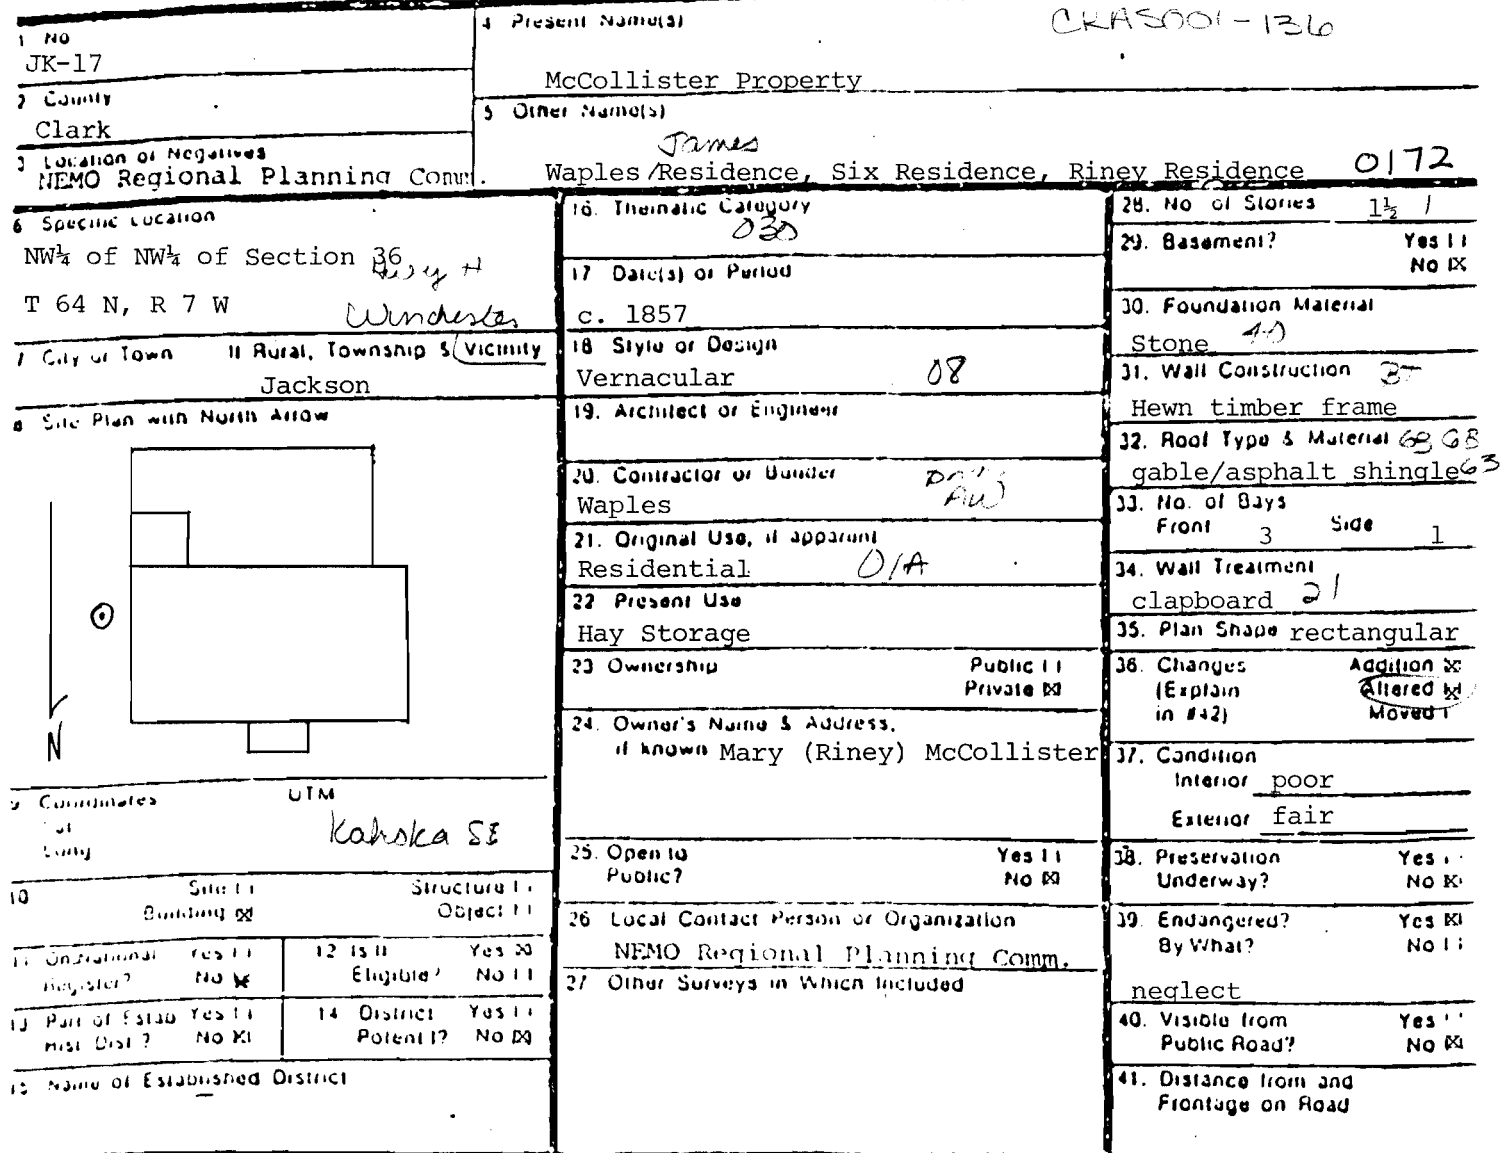 CKAS001-136
1 No
JK-17
4 Present Name(s)
McCollister Property
2 County
Clark
5 Other Name(s)
James
Waples/Residence, Six Residence, Riney Residence 0172
3 Location of Negatives
NEMO Regional Planning Comm.
6 Specific Location
NW¼ of NW¼ of Section 36
Hwy H
T 64 N, R 7 W
Winchester
7 City or Town If Rural, Township & Vicinity
Jackson
8 Site Plan with North Arrow
N
9 Coordinates UTM
Lat
Long
Kahoka SE
10 Site [ ] Structure [ ]
Building [X] Object [ ]
11 On National Register? Yes [ ] No [X]
12 Is It Eligible? Yes [X] No [ ]
13 Part of Estab Hist Dist? Yes [ ] No [X]
14 District Potent'l? Yes [ ] No [X]
15 Name of Established District
16. Thematic Category
030
17 Date(s) or Period
c. 1857
18 Style or Design
Vernacular 08
19. Architect or Engineer
20. Contractor or Builder
Waples
21. Original Use, if apparent
Residential 01A
22 Present Use
Hay Storage
23 Ownership Public [ ]
Private [X]
24. Owner's Name & Address,
if known Mary (Riney) McCollister
25. Open to Public? Yes [ ]
No [X]
26 Local Contact Person or Organization
NEMO Regional Planning Comm.
27 Other Surveys in Which Included
28. No of Stories 1½
29. Basement? Yes [ ]
No [X]
30. Foundation Material
Stone 40
31. Wall Construction
Hewn timber frame
32. Roof Type & Material
gable/asphalt shingle 63
33. No. of Bays
Front 3 Side 1
34. Wall Treatment
clapboard 21
35. Plan Shape rectangular
36. Changes Addition [X]
(Explain Altered [X]
in #42) Moved [ ]
37. Condition
Interior poor
Exterior fair
38. Preservation Yes [ ]
Underway? No [X]
39. Endangered? Yes [X]
By What? No [ ]
neglect
40. Visible from Yes [ ]
Public Road? No [X]
41. Distance from and
Frontage on Road